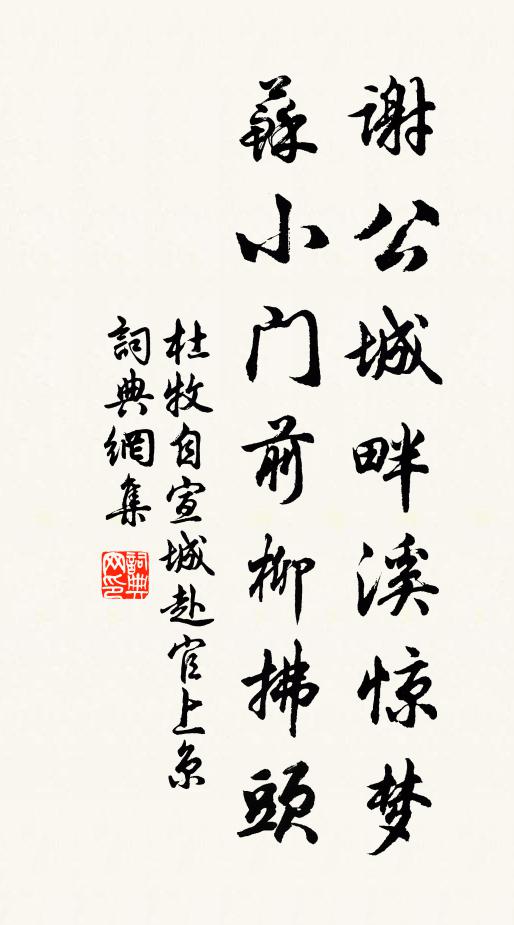 谢公城畔溪惊梦
蘇小门前柳拂頭
杜牧自宣城赴官上京
詞典網集
詞典网印